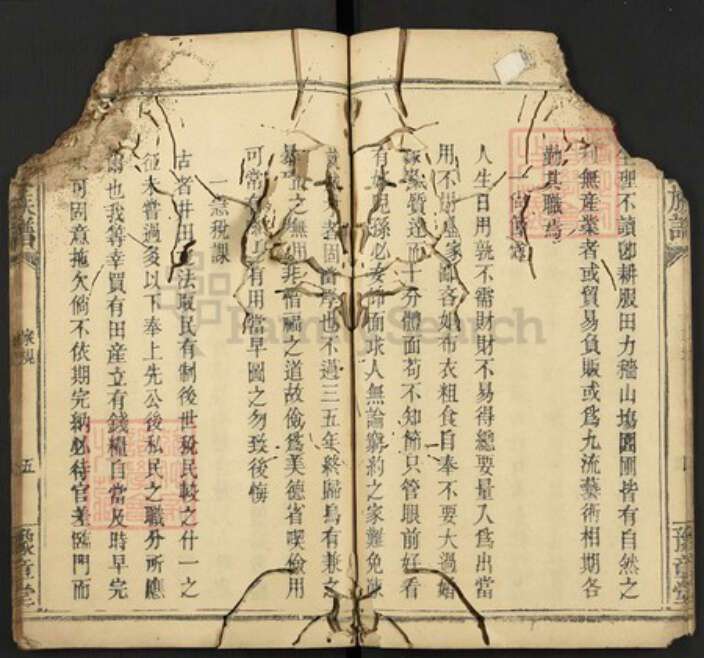 生理不讀卽耕服田力穡山塲園圃皆有自然之
利無産業者或貿易負販或爲九流藝術相期各
勤其職焉
人生日用孰不需財財不易得總要量入爲出當
用不用盡家鄙吝如布衣粗食自奉不要大過婚
嫁點質達而十分體面苟不知節只管眼前好看
有好兒孫必要靠面求人無論窮約之家難免凍
者固當厚也不過三五年終歸烏有兼之
之無用非惜福之道故儉爲美德省喫儉用
可常有用當早圖之勿致後悔
一急稅課
古者井田立法取民有制後世稅民較之什一之
征未嘗過多以下奉上先公後私民之職分所應
爾也我等幸買有田産立有錢糧自當及時早完
不可固意拖欠倘不依期完納必待官差臨門而
族譜
家規
五
豫章堂
FamilySearch